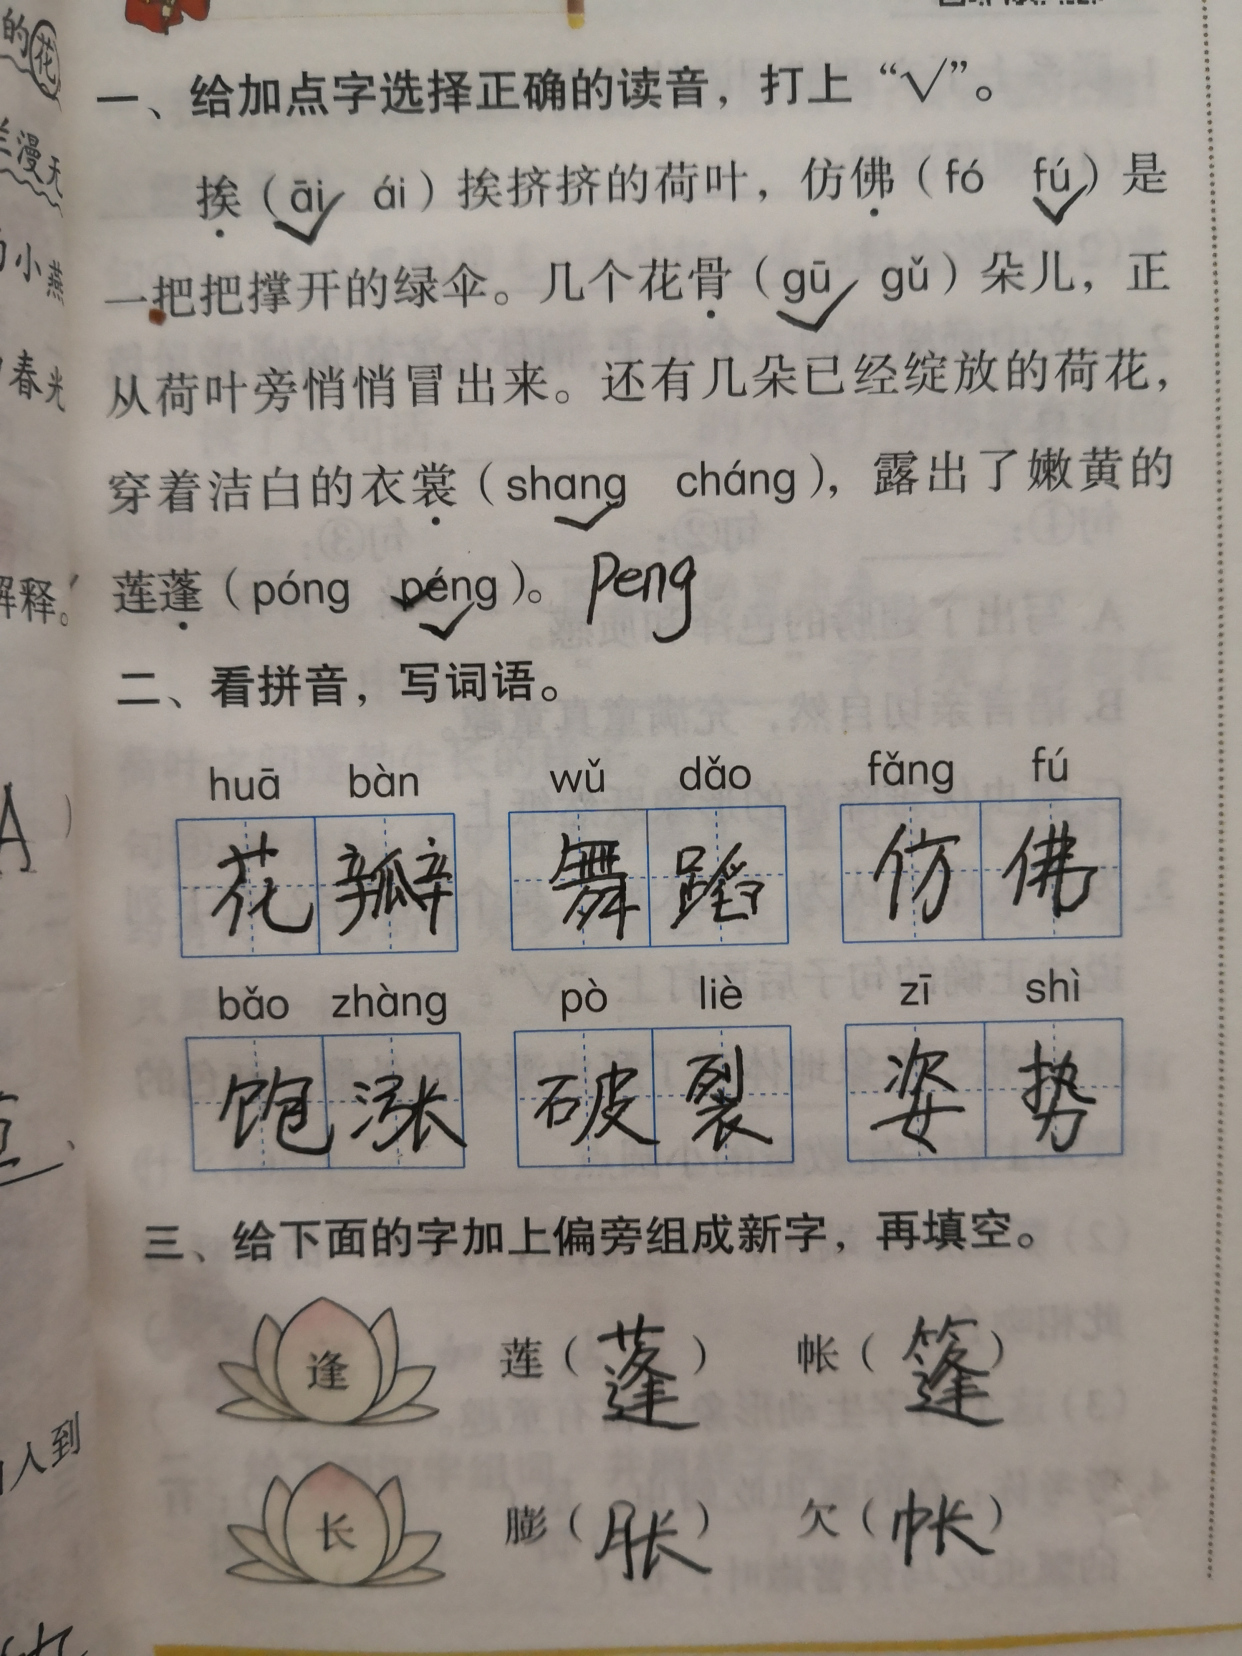 的花
烂漫天
小燕
春光
解释。
A）
人到
一、给加点字选择正确的读音，打上“√”。
挨（āi√ ái）挨挤挤的荷叶，仿佛（fó fú√）是
一把把撑开的绿伞。几个花骨（gū√ gǔ）朵儿，正
从荷叶旁悄悄冒出来。还有几朵已经绽放的荷花，
穿着洁白的衣裳（shang√ cháng），露出了嫩黄的
莲蓬（póng péng√）。peng
二、看拼音，写词语。
huā bàn wǔ dǎo fǎng fú
花瓣 舞蹈 仿佛
bǎo zhàng pò liè zī shì
饱涨 破裂 姿势
三、给下面的字加上偏旁组成新字，再填空。
逢 莲（蓬） 帐（篷）
长 膨（胀） 欠（帐）